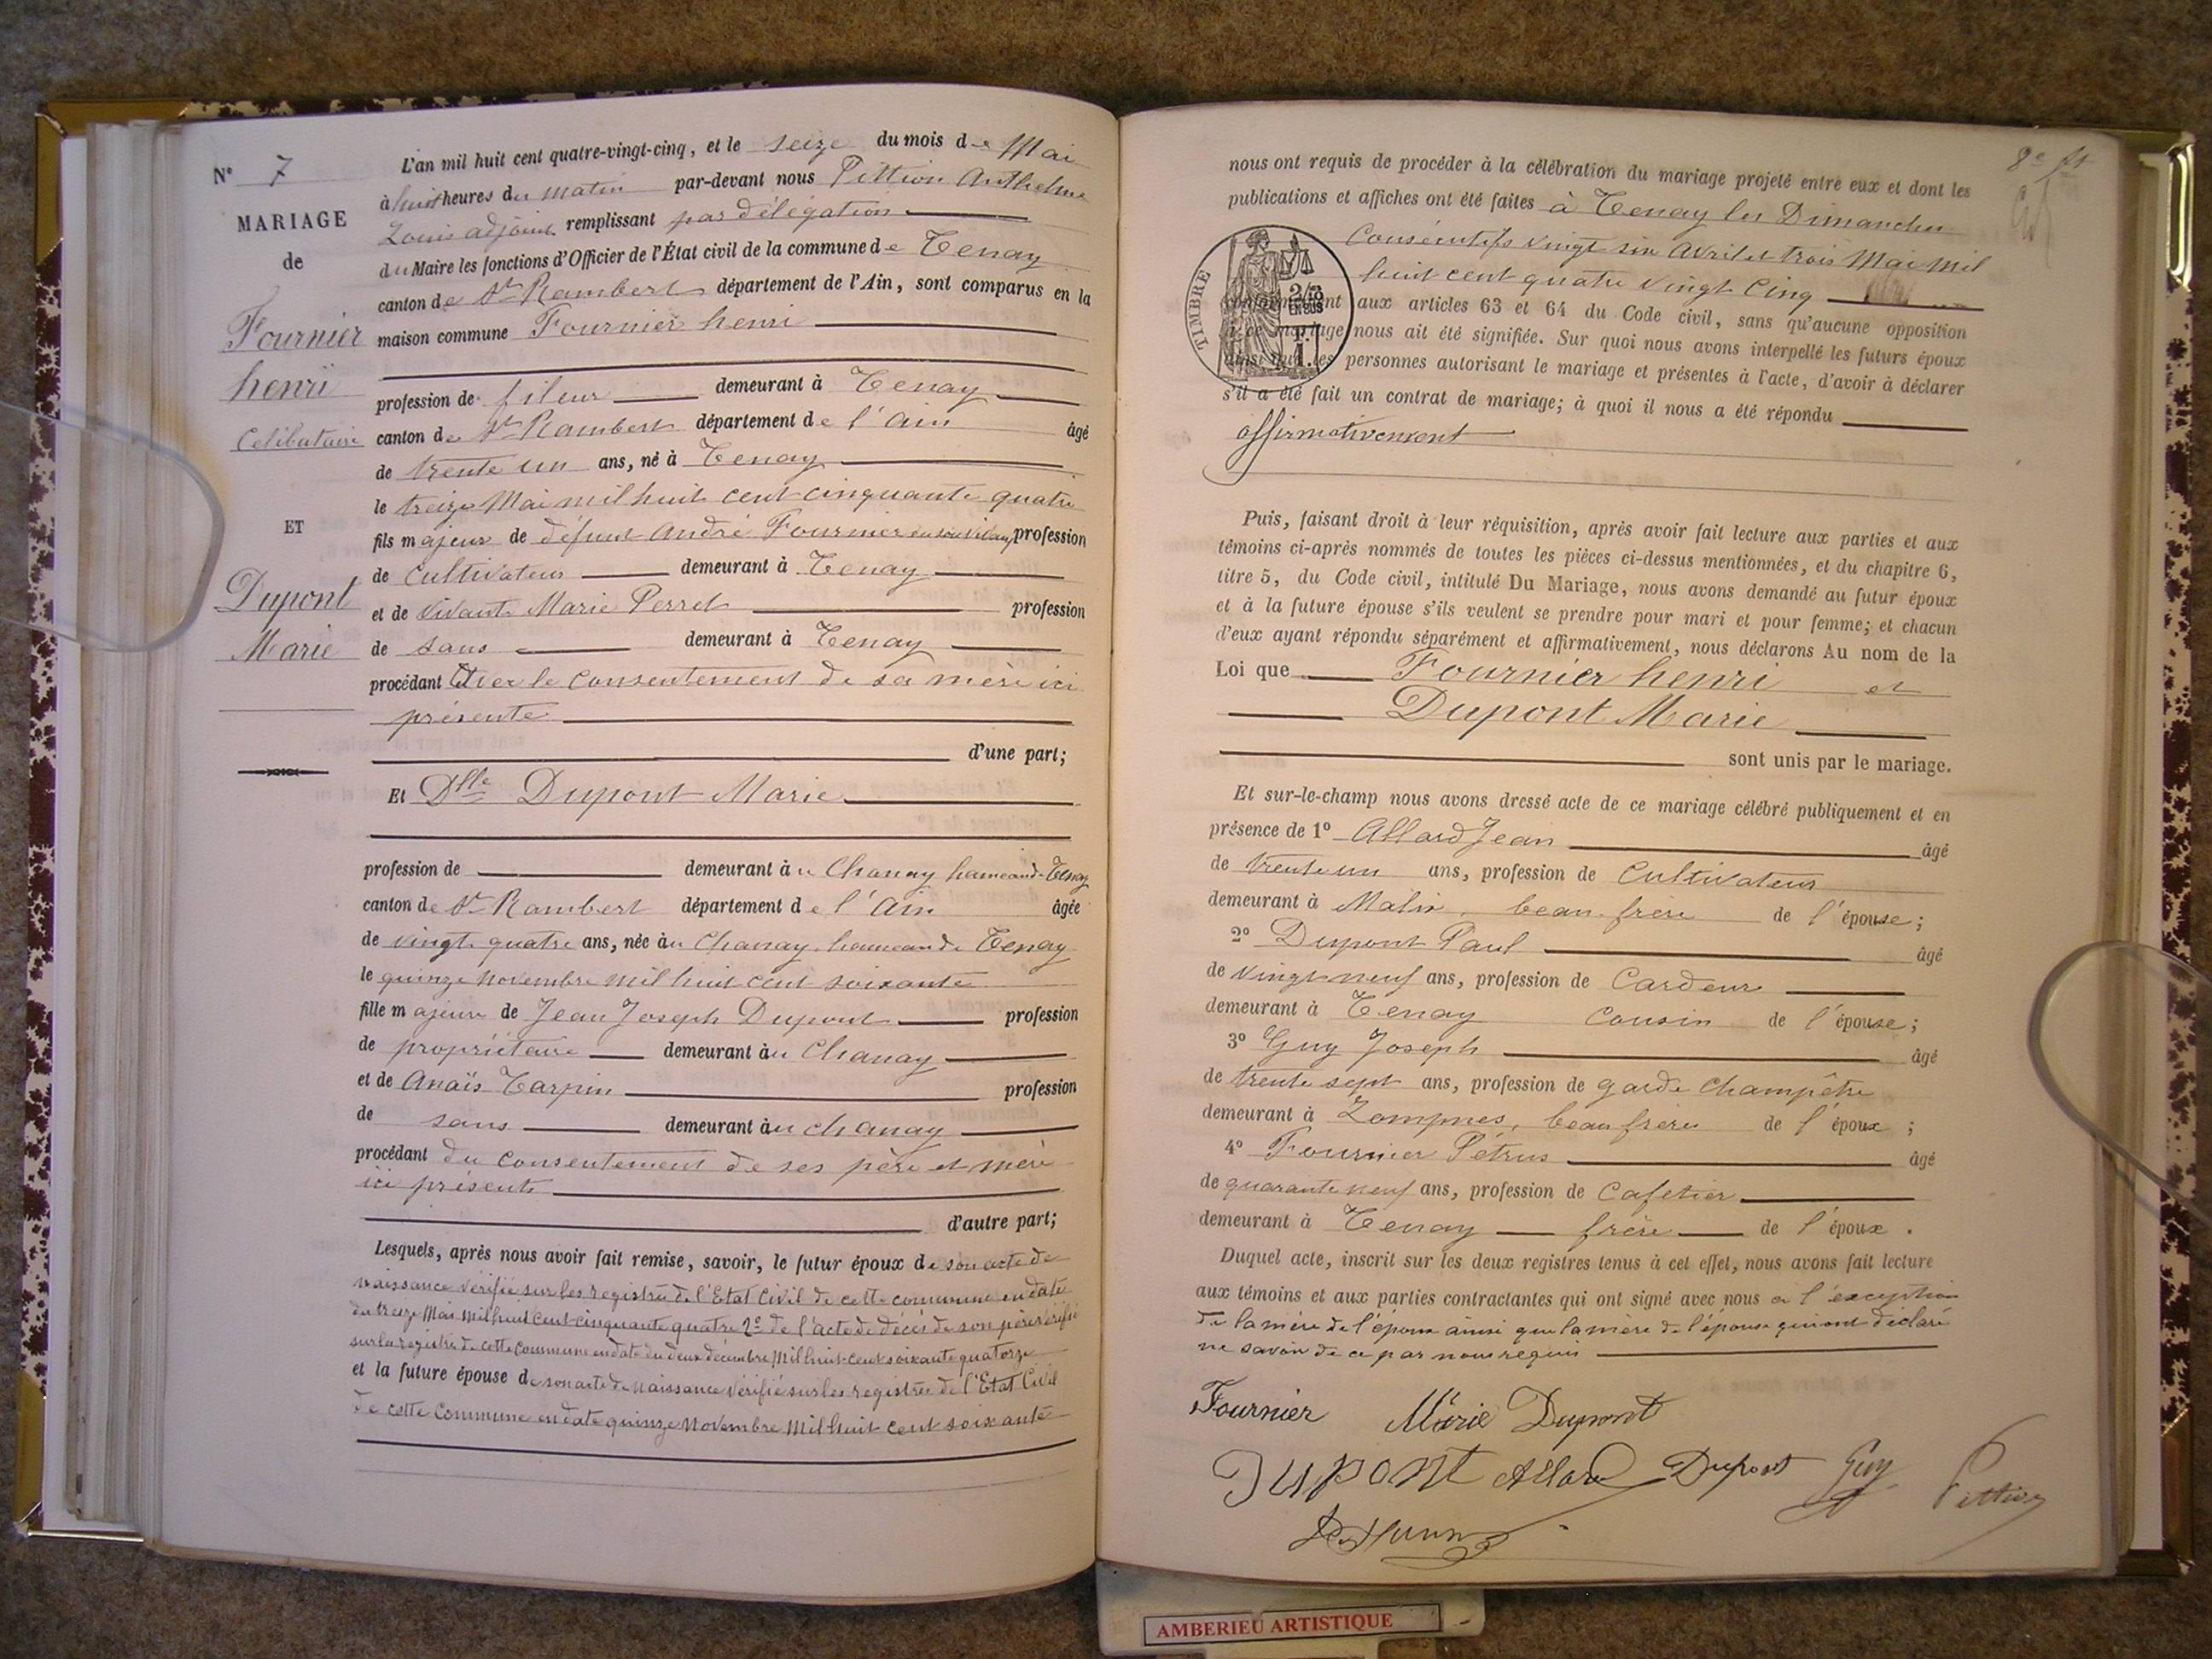 N° 7
MARIAGE
de
Fournier
henri
Célibataire
ET
Dupont
Marie
L'an mil huit cent quatre-vingt-cinq, et le seize du mois de Mai
à huit heures du matin par-devant nous Pittion Anthelme
Louis adjoint remplissant par délégation
du Maire les fonctions d'Officier de l'État civil de la commune de Tenay
canton de St Rambert département de l'Ain, sont comparus en la
maison commune Fournier henri
profession de fileur demeurant à Tenay
canton de St Rambert département de l'Ain âgé
de trente un ans, né à Tenay
le treize Mai mil huit cent cinquante quatre
fils majeur de défunt André Fournier en son vivant profession
de Cultivateur demeurant à Tenay
et de vivante Marie Perret profession
de sans demeurant à Tenay
procédant avec le consentement de sa mère ici
présente
d'une part;
Et Dlle Dupont Marie
profession de demeurant à Chanay hameau de Tenay
canton de St Rambert département de l'Ain âgée
de vingt quatre ans, née à Chanay hameau de Tenay
le quinze Novembre mil huit cent soixante
fille majeure de Jean Joseph Dupont profession
de propriétaire demeurant à Chanay
et de Anaïs Tarpin profession
de sans demeurant à Chanay
procédant du consentement de ses père et mère
ici présents
d'autre part;
Lesquels, après nous avoir fait remise, savoir, le futur époux de son acte de
naissance vérifié sur les registres de l'Etat Civil de cette commune en date
du treize Mai mil huit cent cinquante quatre 2° de l'acte de décès de son père vérifié
sur le registre de cette commune en date du deux décembre mil huit cent soixante quatorze
et la future épouse de son acte de naissance vérifié sur les registres de l'Etat Civil
de cette Commune en date quinze Novembre Mil huit cent soixante
nous ont requis de procéder à la célébration du mariage projeté entre eux et dont les
publications et affiches ont été faites à Tenay les Dimanches
Consécutifs vingt six Avril et trois Mai mil
huit cent quatre vingt Cinq
TIMBRE
conformément aux articles 63 et 64 du Code civil, sans qu'aucune opposition
à ce mariage nous ait été signifiée. Sur quoi nous avons interpellé les futurs époux
ainsi que les personnes autorisant le mariage et présentes à l'acte, d'avoir à déclarer
s'il a été fait un contrat de mariage; à quoi il nous a été répondu
affirmativement
Puis, faisant droit à leur réquisition, après avoir fait lecture aux parties et aux
témoins ci-après nommés de toutes les pièces ci-dessus mentionnées, et du chapitre 6,
titre 5, du Code civil, intitulé Du Mariage, nous avons demandé au futur époux
et à la future épouse s'ils veulent se prendre pour mari et pour femme; et chacun
d'eux ayant répondu séparément et affirmativement, nous déclarons Au nom de la
Loi que Fournier henri et
Dupont Marie
sont unis par le mariage.
Et sur-le-champ nous avons dressé acte de ce mariage célébré publiquement et en
présence de 1° Allard Jean âgé
de trente un ans, profession de Cultivateur
demeurant à Malix, beau-frère de l'épouse;
2° Dupont Paul âgé
de vingt neuf ans, profession de Cardeur
demeurant à Tenay Cousin de l'épouse;
3° Guy Joseph âgé
de trente sept ans, profession de garde Champêtre
demeurant à Lompnes, beau frère de l'époux;
4° Fournier Pétrus âgé
de quarante neuf ans, profession de Cafetier
demeurant à Tenay frère de l'époux.
Duquel acte, inscrit sur les deux registres tenus à cet effet, nous avons fait lecture
aux témoins et aux parties contractantes qui ont signé avec nous à l'exception
de la mère de l'époux ainsi que la mère de l'épouse qui ont déclaré
ne savoir de ce par nous requis
Fournier Marie Dupont
Dupont Allard Dupont Guy Pittion
AMBERIEU ARTISTIQUE